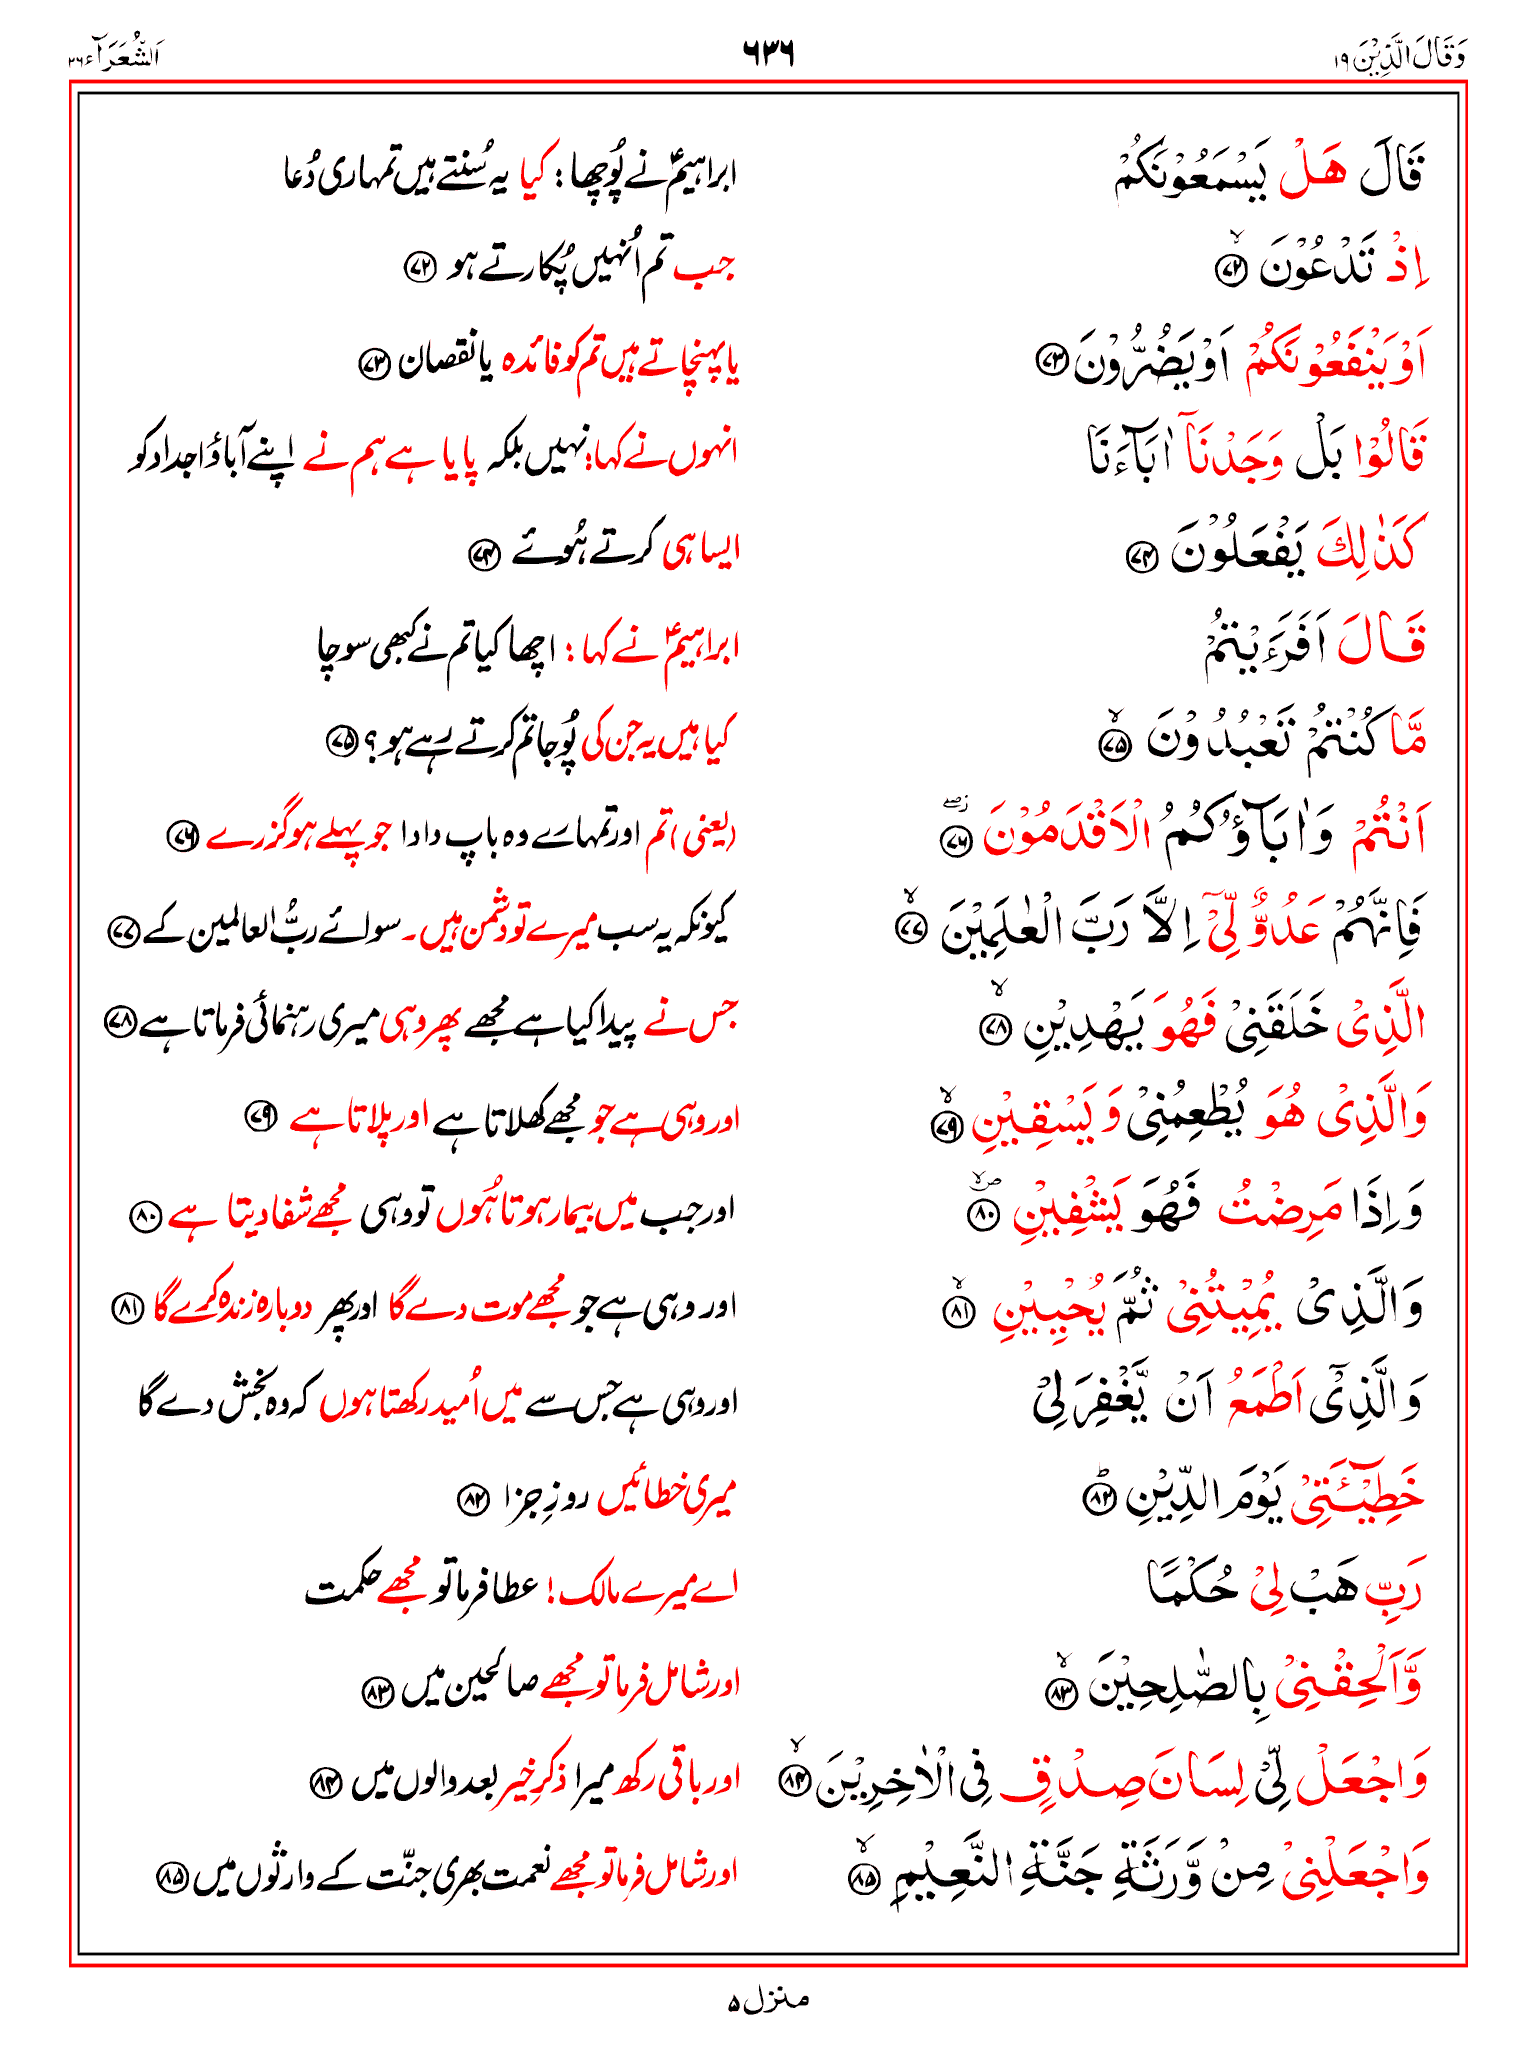 وَقَالَ الَّذِيْنَ ۱۹
۶۳۶
اَلشُّعَرَآء ۲۶
قَالَ هَلْ يَسْمَعُوْنَكُمْ
ابراہیمؑ نے پُوچھا : کیا یہ سُنتے ہیں تمہاری دُعا
اِذْ تَدْعُوْنَ ۙ﴿۷۲﴾
جب تم اُنہیں پُکارتے ہو ﴿۷۲﴾
اَوْ يَنْفَعُوْنَكُمْ اَوْ يَضُرُّوْنَ ﴿۷۳﴾
یا پہنچاتے ہیں تم کو فائدہ یا نقصان ﴿۷۳﴾
قَالُوْا بَلْ وَجَدْنَآ اٰبَآءَنَا
انہوں نے کہا: نہیں بلکہ پایا ہے ہم نے اپنے آباؤ اجداد کو
كَذٰلِكَ يَفْعَلُوْنَ ﴿۷۴﴾
ایسا ہی کرتے ہُوئے ﴿۷۴﴾
قَالَ اَفَرَءَيْتُمْ
ابراہیمؑ نے کہا : اچھا کیا تم نے کبھی سوچا
مَّا كُنْتُمْ تَعْبُدُوْنَ ۙ﴿۷۵﴾
کیا ہیں یہ جن کی پُوجا تم کرتے رہے ہو ؟ ﴿۷۵﴾
اَنْتُمْ وَاٰبَآؤُكُمُ الْاَقْدَمُوْنَ ۖ﴿۷۶﴾
(یعنی) تم اور تمہارے وہ باپ دادا جو پہلے ہو گزرے ﴿۷۶﴾
فَاِنَّهُمْ عَدُوٌّ لِّيْٓ اِلَّا رَبَّ الْعٰلَمِيْنَ ۙ﴿۷۷﴾
کیونکہ یہ سب میرے تو دشمن ہیں۔ سوائے ربُّ العالمین کے ﴿۷۷﴾
الَّذِيْ خَلَقَنِيْ فَهُوَ يَهْدِيْنِ ۙ﴿۷۸﴾
جس نے پیدا کیا ہے مجھے پھر وہی میری رہنمائی فرماتا ہے ﴿۷۸﴾
وَالَّذِيْ هُوَ يُطْعِمُنِيْ وَيَسْقِيْنِ ۙ﴿۷۹﴾
اور وہی ہے جو مجھے کھلاتا ہے اور پلاتا ہے ﴿۷۹﴾
وَاِذَا مَرِضْتُ فَهُوَ يَشْفِيْنِ ۙ﴿۸۰﴾
اور جب میں بیمار ہوتا ہُوں تو وہی مجھے شفا دیتا ہے ﴿۸۰﴾
وَالَّذِيْ يُمِيْتُنِيْ ثُمَّ يُحْيِيْنِ ۙ﴿۸۱﴾
اور وہی ہے جو مجھے موت دے گا اور پھر دوبارہ زندہ کرے گا ﴿۸۱﴾
وَالَّذِيْٓ اَطْمَعُ اَنْ يَّغْفِرَ لِيْ
اور وہی ہے جس سے میں اُمید رکھتا ہوں کہ وہ بخش دے گا
خَطِيْٓئَتِيْ يَوْمَ الدِّيْنِ ؕ﴿۸۲﴾
میری خطائیں روزِ جزا ﴿۸۲﴾
رَبِّ هَبْ لِيْ حُكْمًا
اے میرے مالک! عطا فرما تو مجھے حکمت
وَّاَلْحِقْنِيْ بِالصّٰلِحِيْنَ ۙ﴿۸۳﴾
اور شامل فرما تو مجھے صالحین میں ﴿۸۳﴾
وَاجْعَلْ لِّيْ لِسَانَ صِدْقٍ فِي الْاٰخِرِيْنَ ۙ﴿۸۴﴾
اور باقی رکھ میرا ذکرِ خیر بعد والوں میں ﴿۸۴﴾
وَاجْعَلْنِيْ مِنْ وَّرَثَةِ جَنَّةِ النَّعِيْمِ ۙ﴿۸۵﴾
اور شامل فرما تو مجھے نعمت بھری جنّت کے وارثوں میں ﴿۸۵﴾
منزل ۵